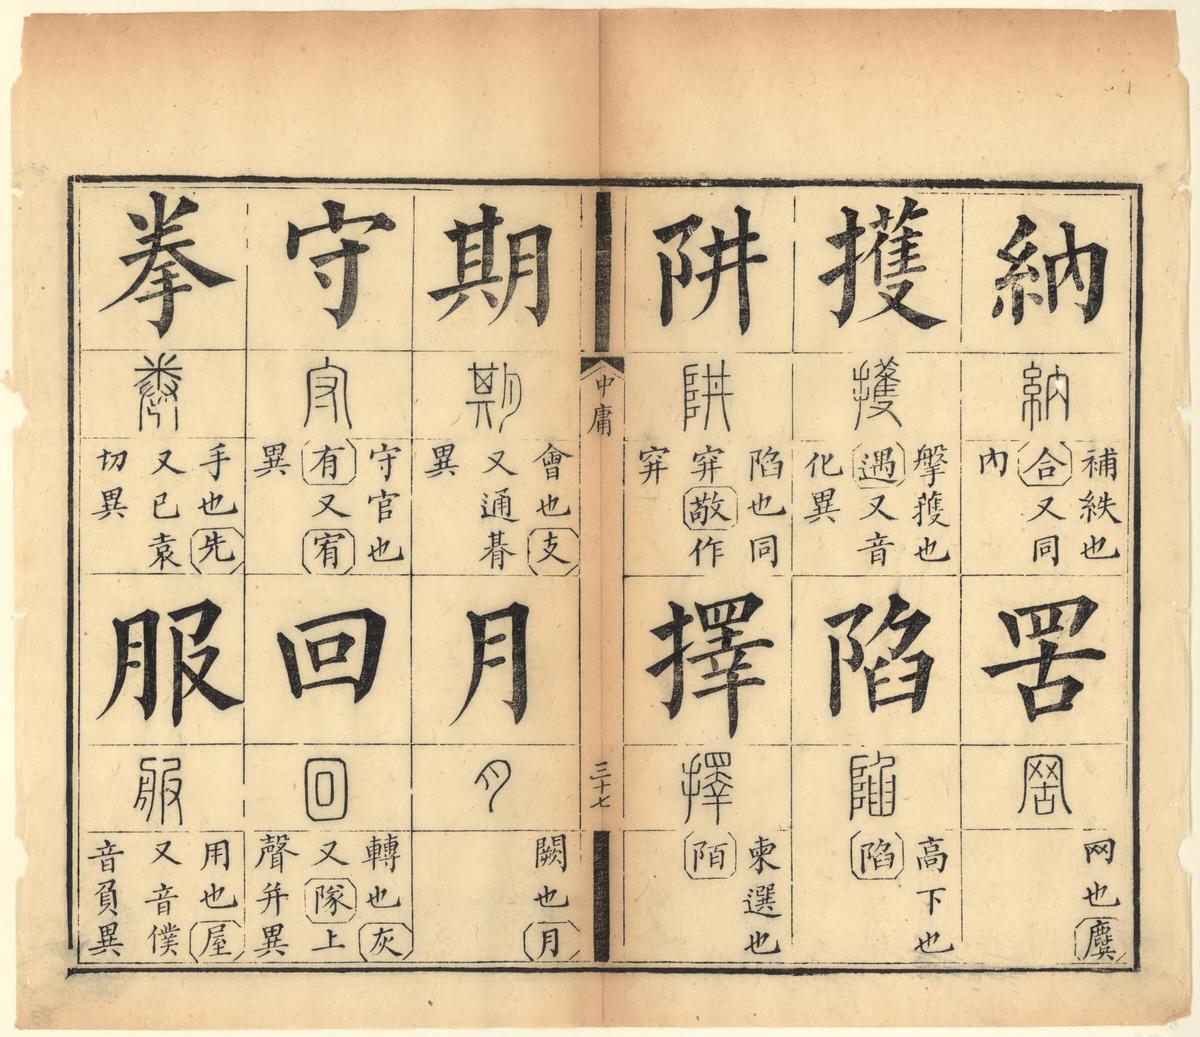 納
納
補紩也
合又同
內
罟
罟
网也麌
擭
擭
搫擭也
遇又音
化異
陷
陷
高下也
陷
阱
阱
陷也同
穽敬作
穽
擇
擇
柬選也
陌
中庸
三十七
期
期
會也支
又通朞
異
月
月
闕也月
守
守
守官也
有又宥
異
回
回
轉也灰
又隊上
聲并異
拳
拳
手也先
又已袁
切異
服
服
用也屋
又音僕
音負異